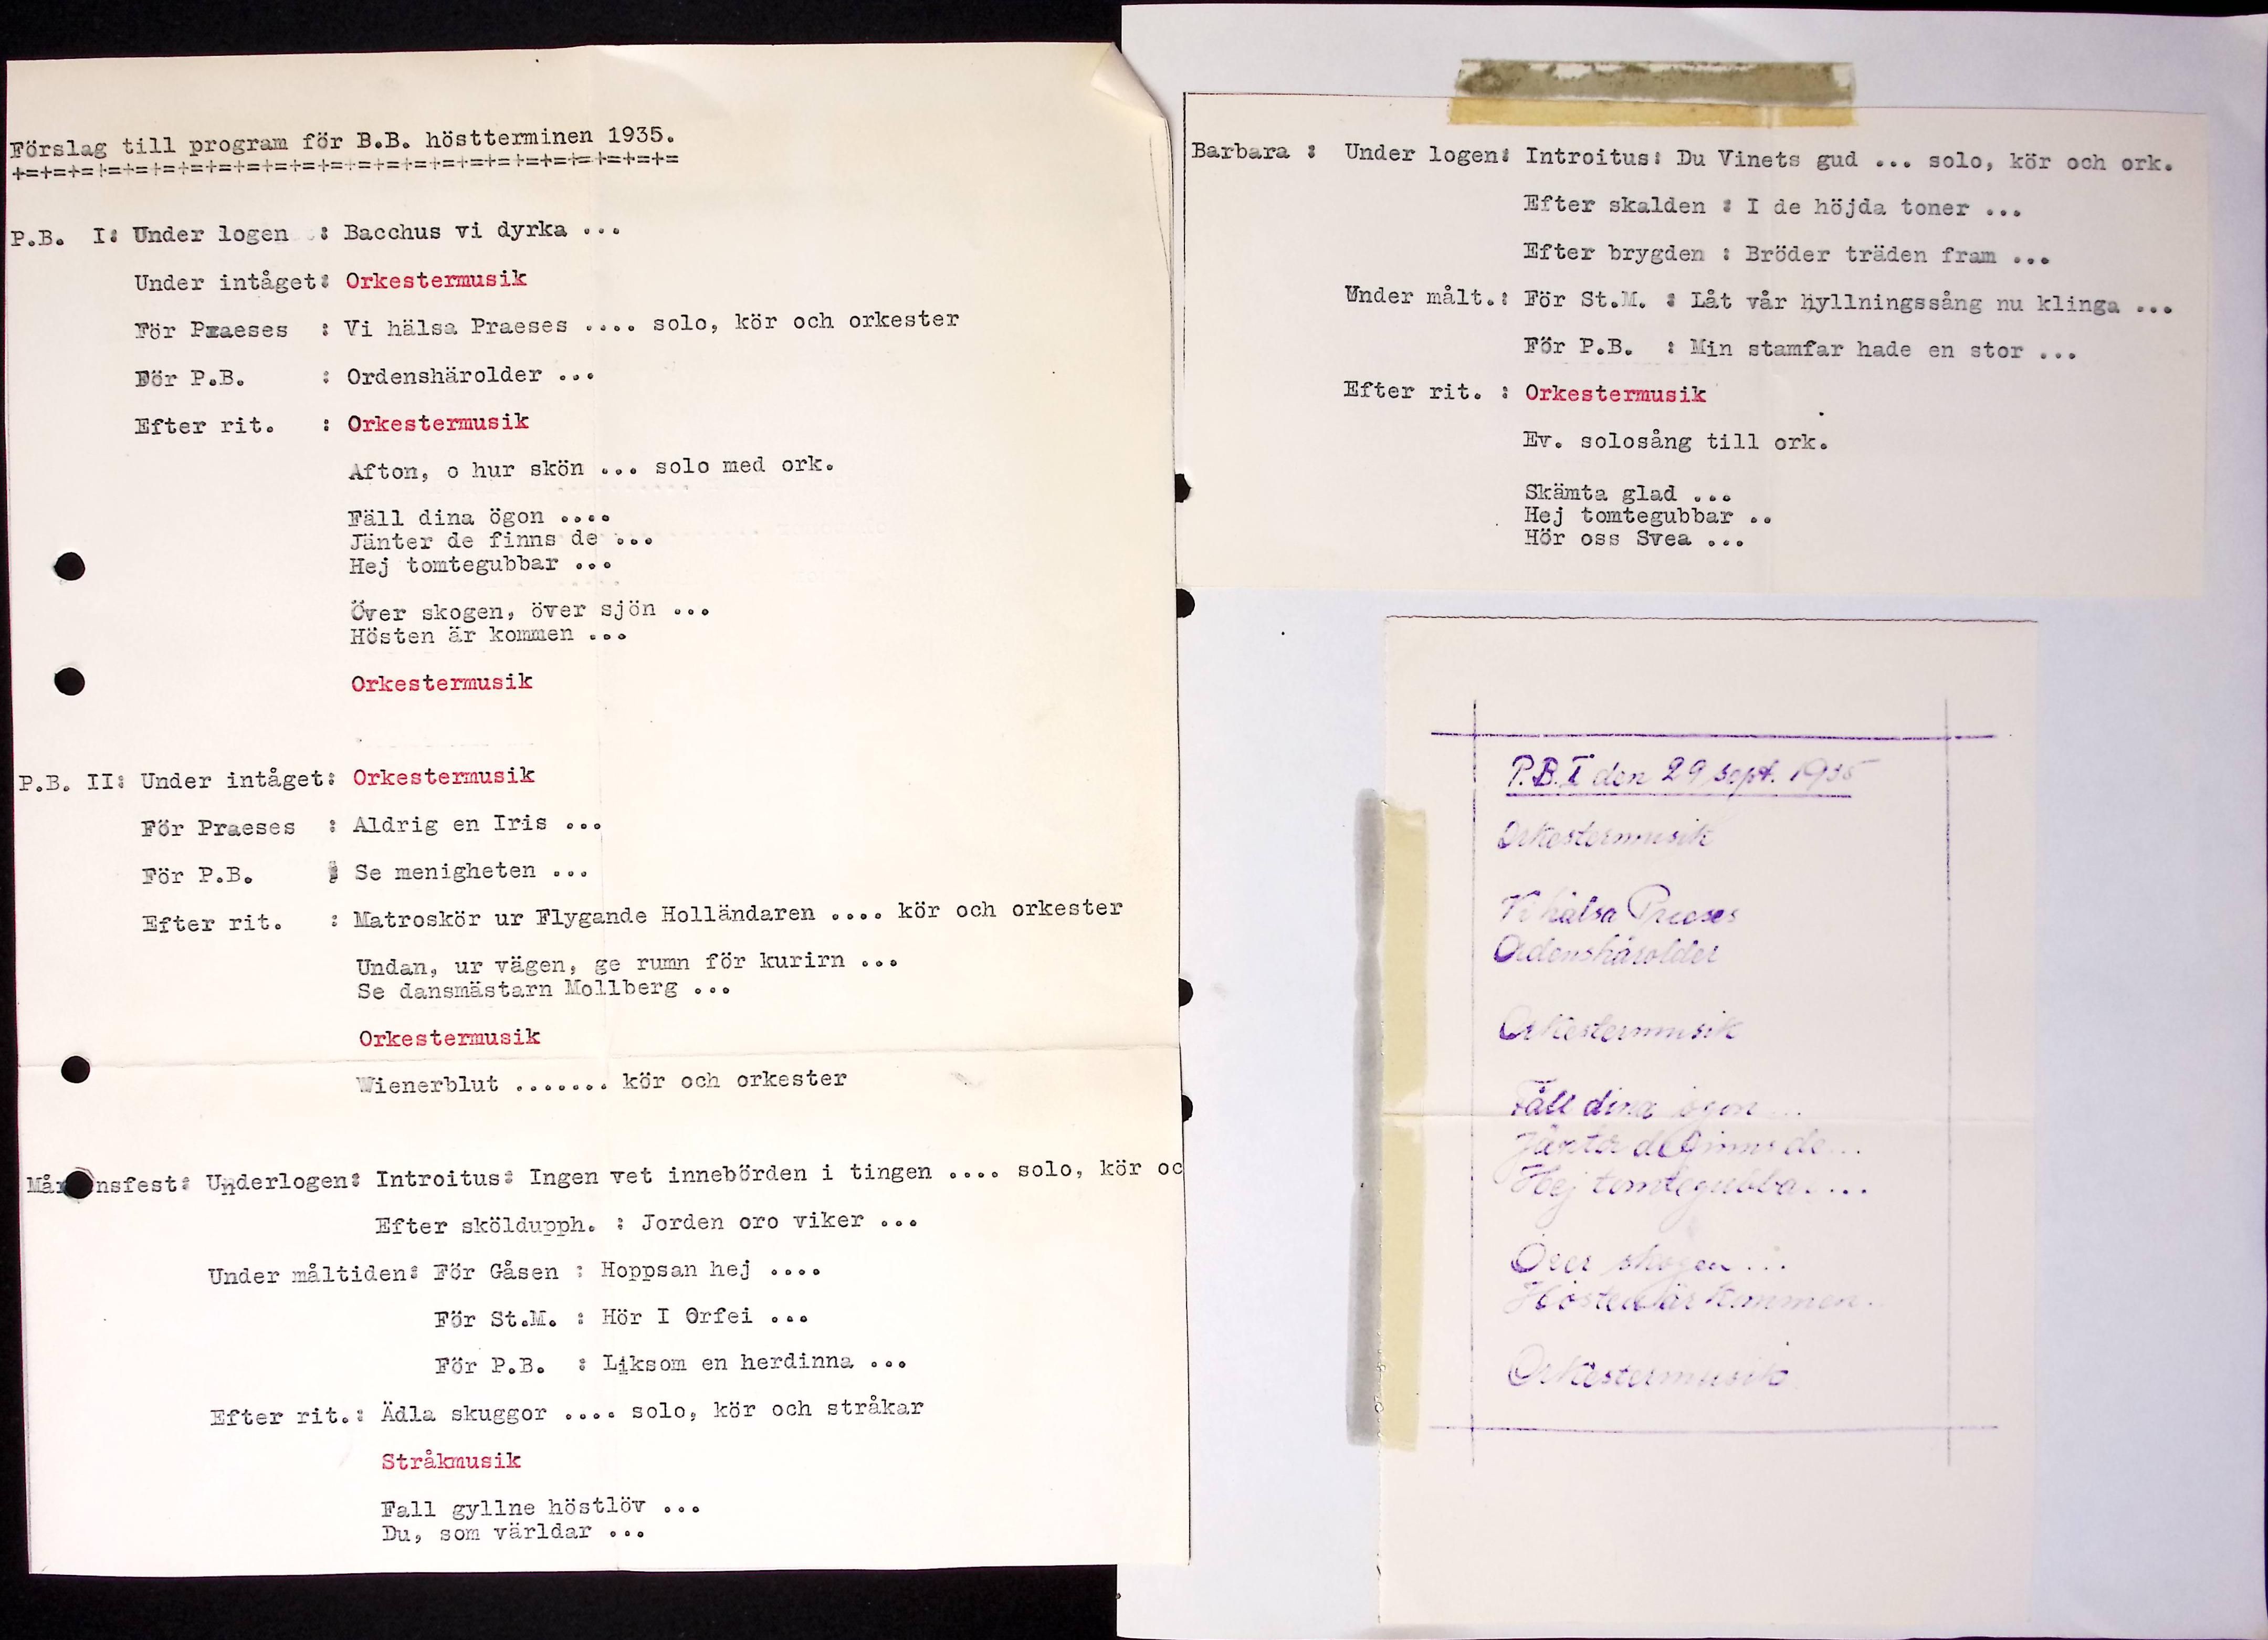 Förslag till program för B.B. höstterminen 1935.
+=+=+=+=+=+=+=+=+=+=+=+=+=+=+=+=+=+=+=+=+=+=+=+=
P.B. I: Under logen : Bacchus vi dyrka ...
Under intåget: Orkestermusik
För Praeses : Vi hälsa Praeses .... solo, kör och orkester
För P.B. : Ordenshärolder ...
Efter rit. : Orkestermusik
Afton, o hur skön ... solo med ork.
Fäll dina ögon ....
Jänter de finns de ...
Hej tomtegubbar ...
Över skogen, över sjön ...
Hösten är kommen ...
Orkestermusik
P.B. II: Under intåget: Orkestermusik
För Praeses : Aldrig en Iris ...
För P.B. : Se menigheten ...
Efter rit. : Matroskör ur Flygande Holländaren .... kör och orkester
Undan, ur vägen, ge rumn för kurirn ...
Se dansmästarn Mollberg ...
Orkestermusik
Wienerblut ....... kör och orkester
Mår nsfest: Underlogen: Introitus: Ingen vet innebörden i tingen .... solo, kör oc
Efter sköldupph. : Jorden oro viker ...
Under måltiden: För Gåsen : Hoppsan hej ....
För St.M. : Hör I Orfei ...
För P.B. : Liksom en herdinna ...
Efter rit.: Ädla skuggor .... solo, kör och stråkar
Stråkmusik
Fall gyllne höstlöv ...
Du, som världar ...
Barbara : Under logen: Introitus: Du Vinets gud ... solo, kör och ork.
Efter skalden : I de höjda toner ...
Efter brygden : Bröder träden fram ...
Under målt.: För St.M. : Låt vår hyllningssång nu klinga ...
För P.B. : Min stamfar hade en stor ...
Efter rit. : Orkestermusik
Ev. solosång till ork.
Skämta glad ...
Hej tomtegubbar ..
Hör oss Svea ...
P.B. I den 29 sept. 1935
Orkestermusik
Vi hälsa Praeses
Ordenshärolder
Orkestermusik
Fäll dina ögon ...
Jänter de finns de ...
Hej tomtegubba. ...
Över skogen ...
Hösten är kommen.
Orkestermusik